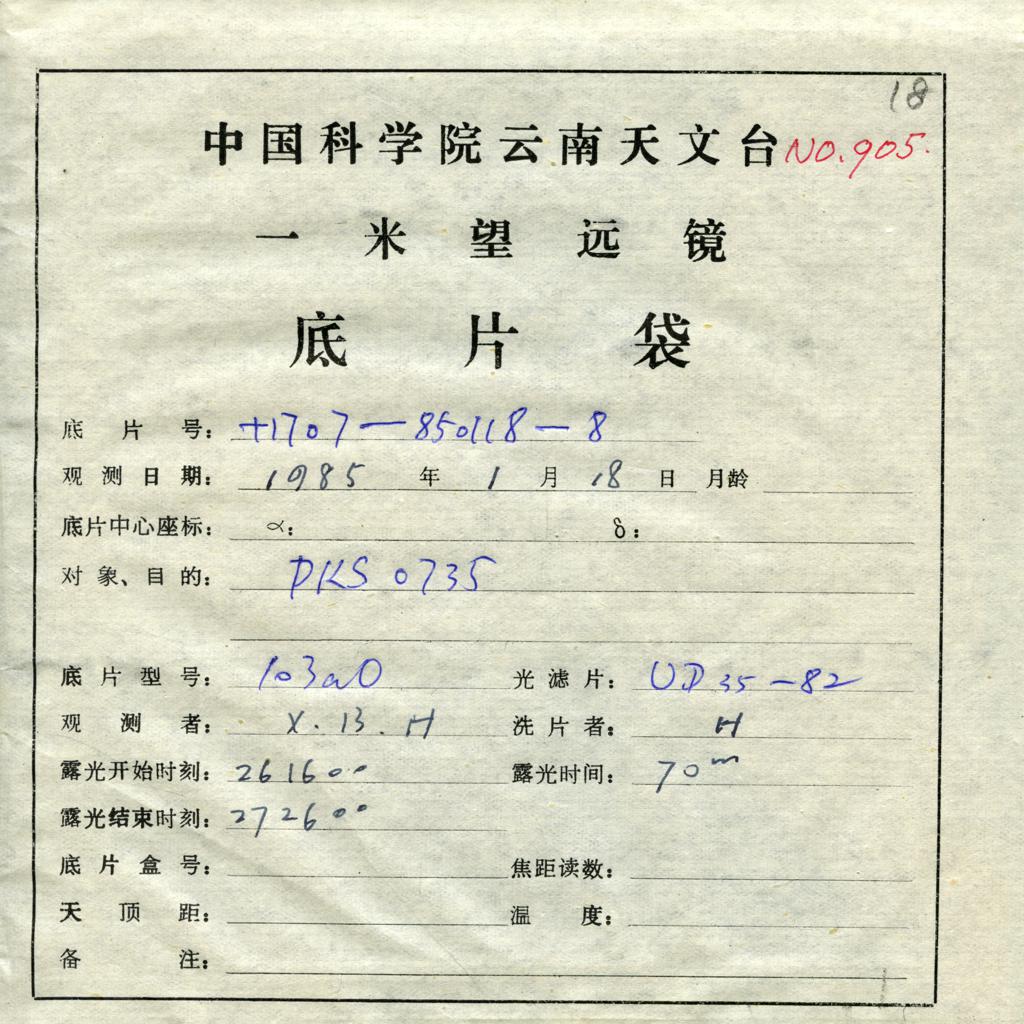 18
中国科学院云南天文台 NO.905.
一米望远镜
底片袋
底片号: +1707-850118-8
观测日期: 1985 年 1 月 18 日 月龄
底片中心座标: α: δ:
对象、目的: PKS 0735
底片型号: 103aO 光滤片: UP35-82
观测者: X.B.H 洗片者: H
露光开始时刻: 261600 露光时间: 70m
露光结束时刻: 272600
底片盒号: 焦距读数:
天顶距: 温度:
备注: